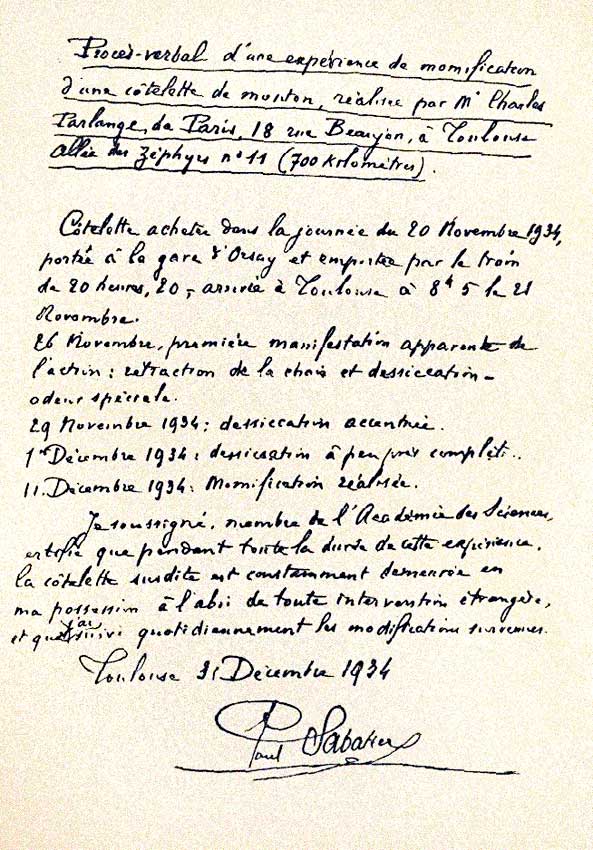 Procès-verbal d'une expérience de momification
d'une côtelette de mouton, réalisée par Mr Charles
Parlange, de Paris, 18 rue Beaujon, à Toulouse
allée des Zéphyrs n° 11 (700 kilomètres).
Côtelette achetée dans la journée du 20 Novembre 1934,
portée à la gare d'Orsay et emportée par le train
de 20 heures, 20, - arrivée à Toulouse à 8h 5 le 21
Novembre.
26 Novembre, première manifestation apparente de
l'action : rétraction de la chair et dessiccation -
odeur spéciale.
29 Novembre 1934 : dessiccation accentuée.
1er Décembre 1934 : dessiccation à peu près complète.
11. Décembre 1934 : Momification réalisée.
Je soussigné, membre de l'Académie des Sciences,
certifie que pendant toute la durée de cette expérience,
la côtelette susdite est constamment demeurée en
ma possession à l'abri de toute intervention étrangère,
et que j'ai suivi quotidiennement les modifications survenues.
Toulouse 31 Décembre 1934
Paul Sabatier